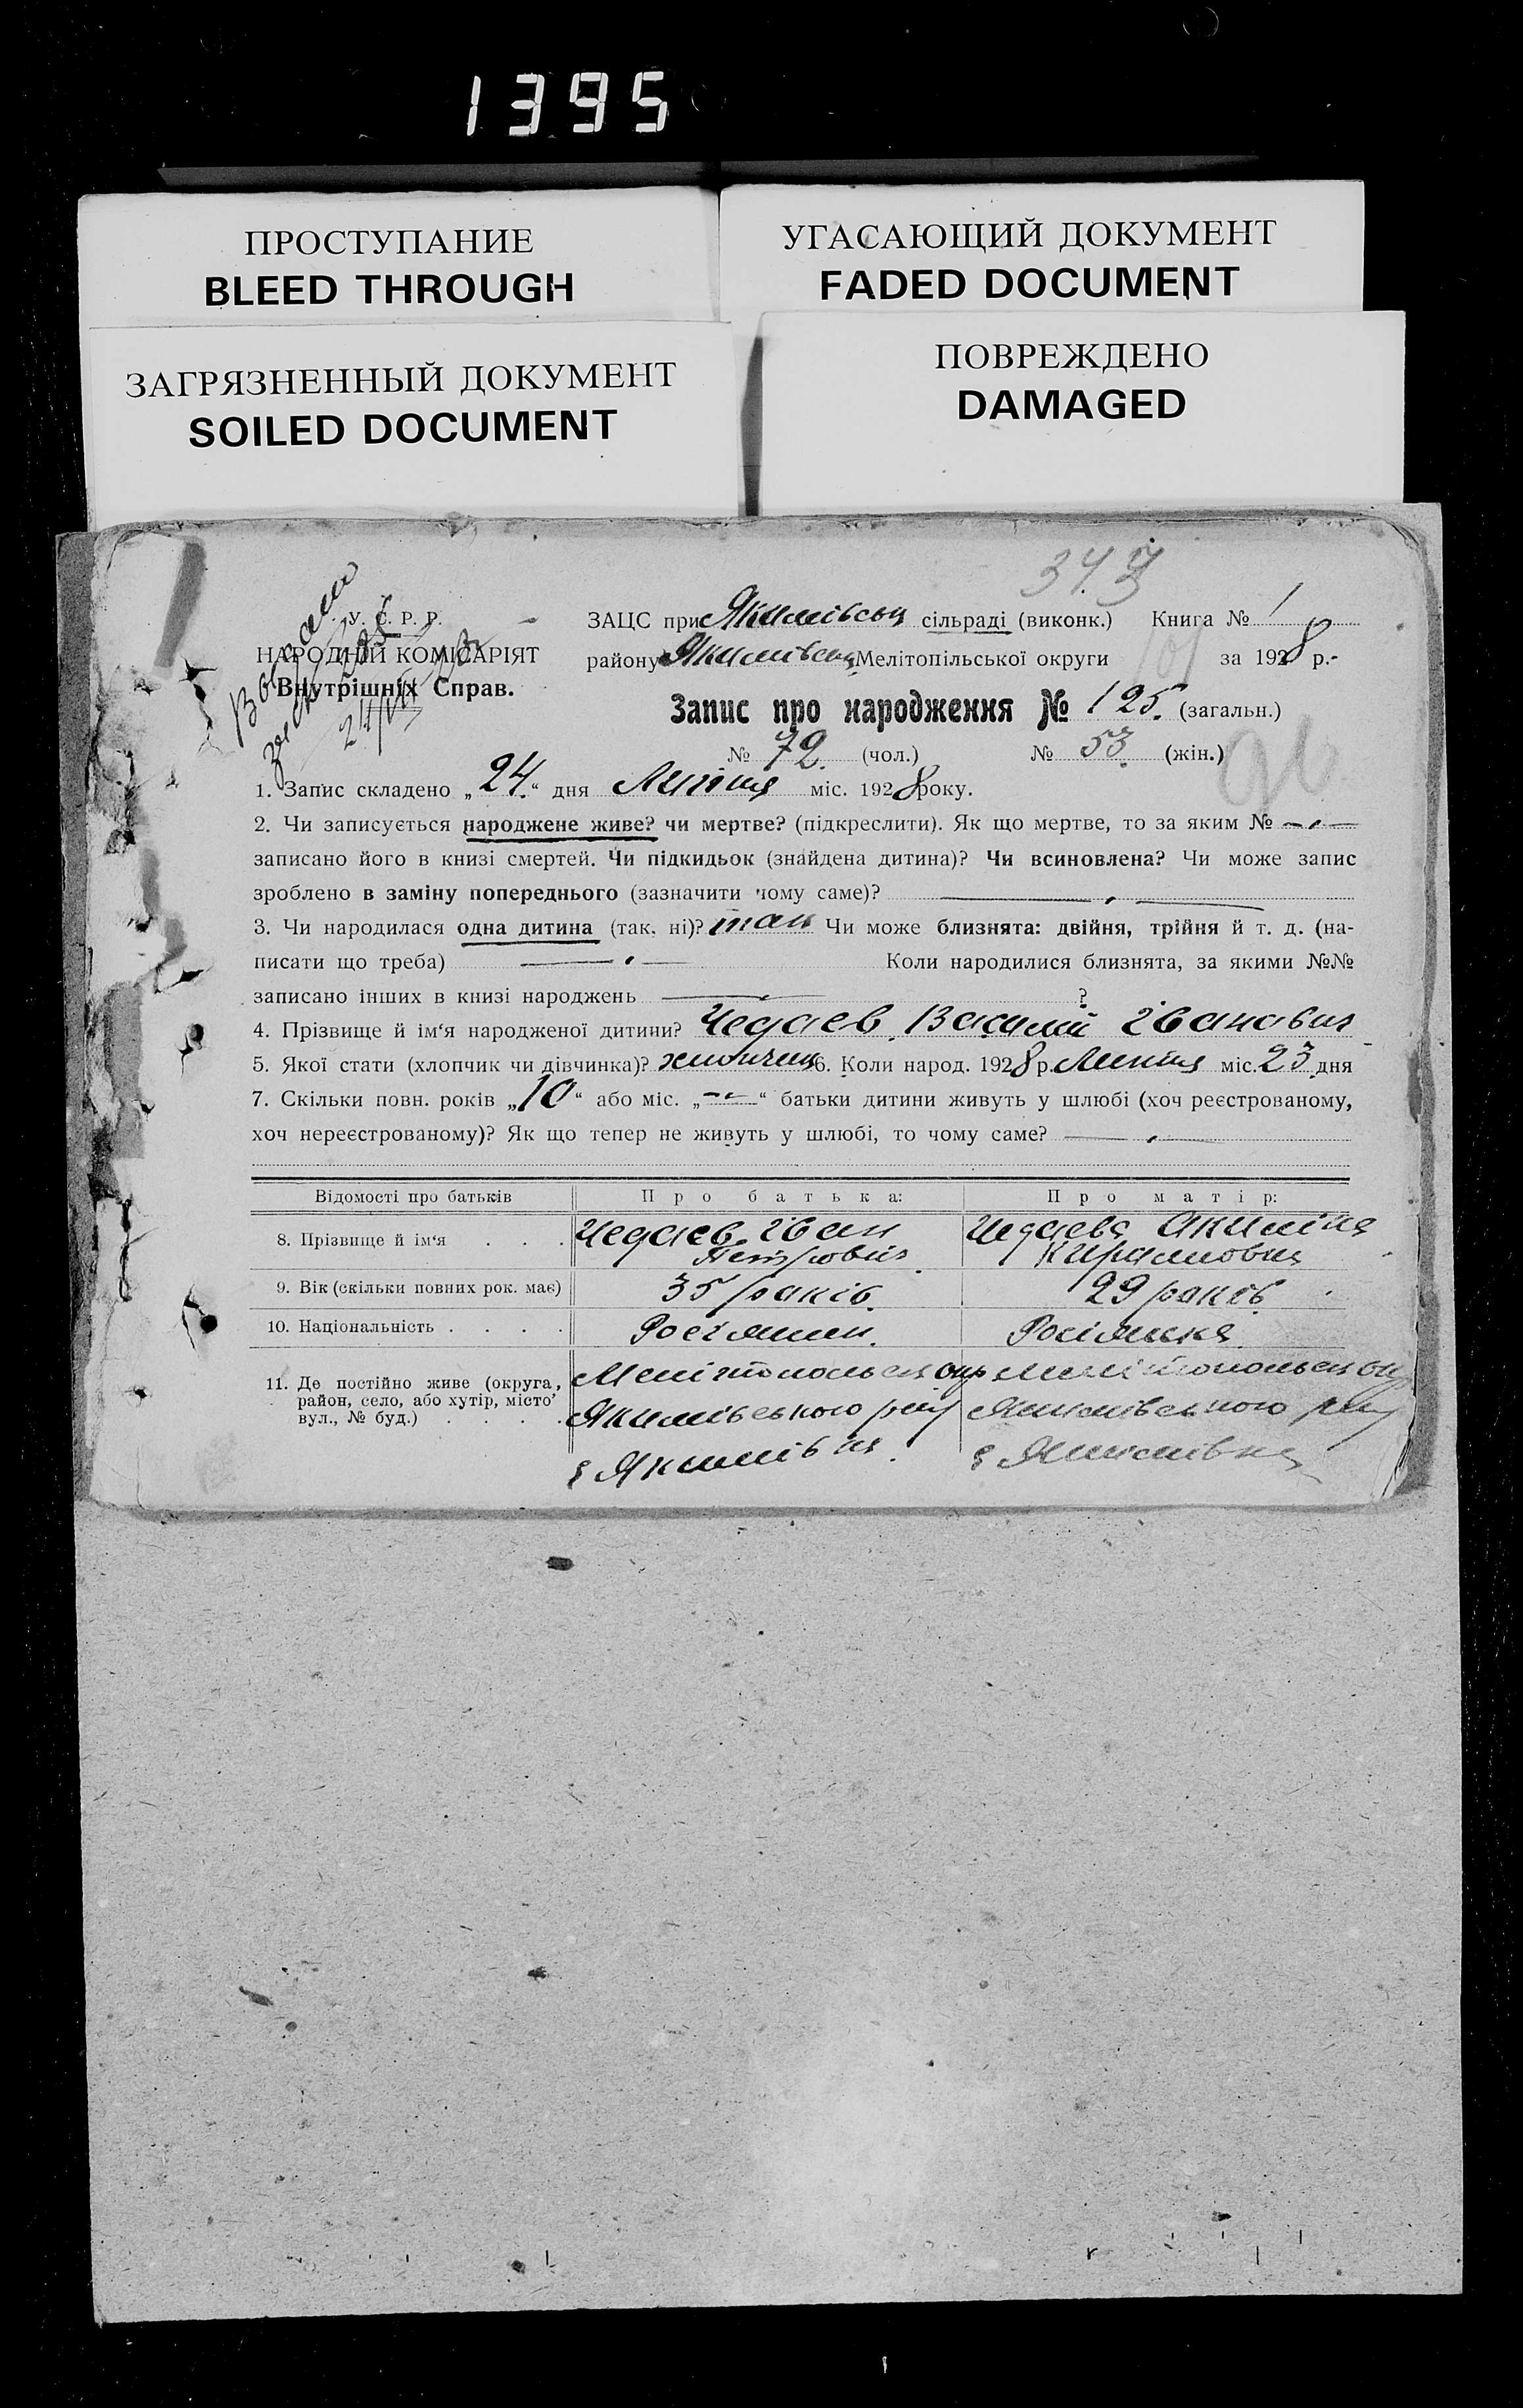 1395
ПРОСТУПАНИЕ
BLEED THROUGH
УГАСАЮЩИЙ ДОКУМЕНТ
FADED DOCUMENT
ЗАГРЯЗНЕННЫЙ ДОКУМЕНТ
SOILED DOCUMENT
ПОВРЕЖДЕНО
DAMAGED
У. С. Р. Р.
НАРОДНІЙ КОМІСАРІЯТ
Внутрішніх Справ.
ЗАЦС при Якимівськ сільраді (виконк.) Книга № 1
району Якимівськ Мелітопільської округи за 1928 р.-
Запис про народження № 125. (загальн.)
№ 72. (чол.) № 53. (жін.)
1. Запис складено „24.“ дня Липня міс. 1928 року.
2. Чи записується народжене живе? чи мертве? (підкреслити). Як що мертве, то за яким №
записано його в книзі смертей. Чи підкидьок (знайдена дитина)? Чи всиновлена? Чи може запис
зроблено в заміну попереднього (зазначити чому саме)?
3. Чи народилася одна дитина (так, ні)? так Чи може близнята: двійня, трійня й т. д. (на-
писати що треба) Коли народилися близнята, за якими №№
записано інших в книзі народжень ?
4. Прізвище й ім‘я народженої дитини? Чедаев Василий Иванович
5. Якої стати (хлопчик чи дівчинка)? хлопчик 6. Коли народ. 1928 р. Липня міс. 23 дня
7. Скільки повн. років „10“ або міс. „—“ батьки дитини живуть у шлюбі (хоч реєстрованому,
хоч нереєстрованому)? Як що тепер не живуть у шлюбі, то чому саме?
Відомості про батьків Про батька: Про матір:
8. Прізвище й ім‘я . . . Чедаев Іван Чедаева Акиліна
Петрович
9. Вік (скільки повних рок. має) 35 років. 29 років.
10. Національність . . . . Росіянин. Росіянка.
11. Де постійно живе (округа, район, село, або хутір, місто, вул., № буд.) . . . .
Мелітопольськ окр Мелітопольськ окр
Якимівського рну Якимівського рну
с Якимівка. с Якимівка